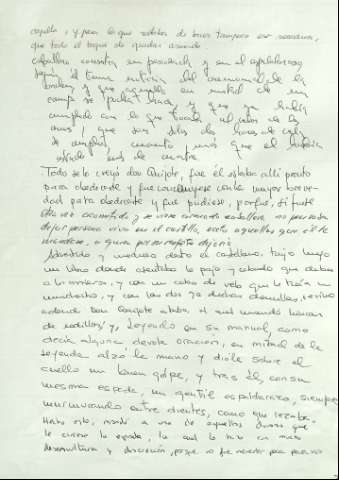 capilla, y para lo que restaba de hacer tampoco era necesaria,
que todo el toque de quedar armado
caballero consistía en pescozada y en el espaldarazo,
según él tenía noticia del ceremonial de la
orden, y que aquello en mitad de un
campo se podía hacer, y que ya había
cumplido con lo que tocaba al velar de las
armas, que con solas dos horas de vela
se cumplía, cuanto más que él había
estado más de cuatro.
Todo se lo creyó don Quijote, que él estaba allí pronto
para obedecerle y que concluyese con la mayor breve-
dad para obedecerle y que pudiese, porque, si fuese
otra vez acometido y se viese armado caballero, no pensaba
dejar persona viva en el castillo, excepto aquellas que él le
mandase, a quien por su respeto dejaría.
Advertido y medroso desto el castellano, trajo luego
un libro donde asentaba la paja y cebada que daba
a los arrieros, y con un cabo de vela que le traía un
muchacho, y con las dos ya dichas doncellas, se vino
adonde don Quijote estaba, al cual mandó hincar
de rodillas; y, leyendo en su manual, como
decía alguna devota oración, en mitad de la
leyenda alzó la mano y diole sobre el
cuello un buen golpe, y tras él, con su
mesma espada, un gentil espaldarazo, siempre
murmurando entre dientes, como que rezaba.
Hecho esto, mandó a una de aquellas damas que
le ciñese la espada, la cual lo hizo con mucha
desenvoltura y discreción, porque no fue menester poca para no